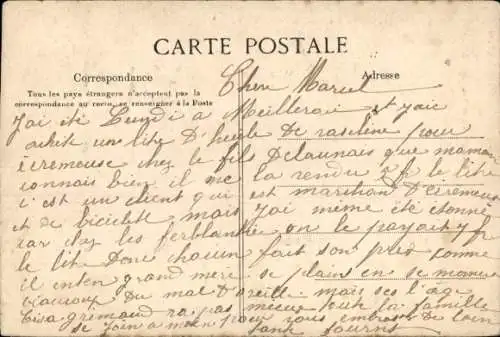 CARTE POSTALE
Correspondance
Adresse
Tous les pays étrangers n'acceptent pas la
correspondance au recto, se renseigner à la Poste
Cher Marcel
J'ai été Lundi a Meillerai et j'aie
acheté un litre D'huile De vaseline pour
écremeuse chez le fils Delaunais que maman
connais bien il me la vendu 2 f le litre
c'est un client qui est marchan D'écremeuse
et de biciclete mais J'ai même été étonné
car chez les ferblantié on le payait 7 f
le litre Donc chacun fait son prix comme
il enten grand mère se plain en se moment
 Du mal D'oreille mais ses l'age
 ra pas mieux toute la famille
se join a moin pour vous embrasser de loin